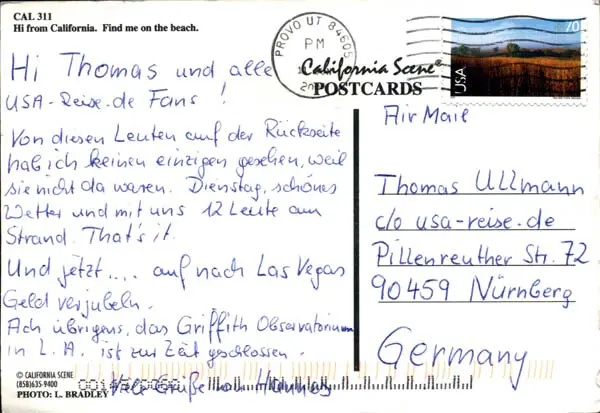 CAL 311
Hi from California. Find me on the beach.
PROVO UT 84605
PM
California Scene®
POSTCARDS
70
USA
Hi Thomas und alle
USA-Reise.de Fans!
Von diesen Leuten auf der Rückseite
hab ich keinen einzigen gesehen, weil
sie nicht da waren. Dienstag, schönes
Wetter und mit uns 12 Leute am
Strand. That's it.
Und jetzt.... auf nach Las Vegas
Geld verjubeln.
Ach übrigens, das Griffith Observatorium
in L.A. ist zur Zeit geschlossen.
Viele Grüße von Hannes
Air Mail
Thomas Ullmann
c/o usa-reise.de
Pillenreuther Str. 72
90459 Nürnberg
Germany
© CALIFORNIA SCENE
(858)635-9400
PHOTO: L. BRADLEY